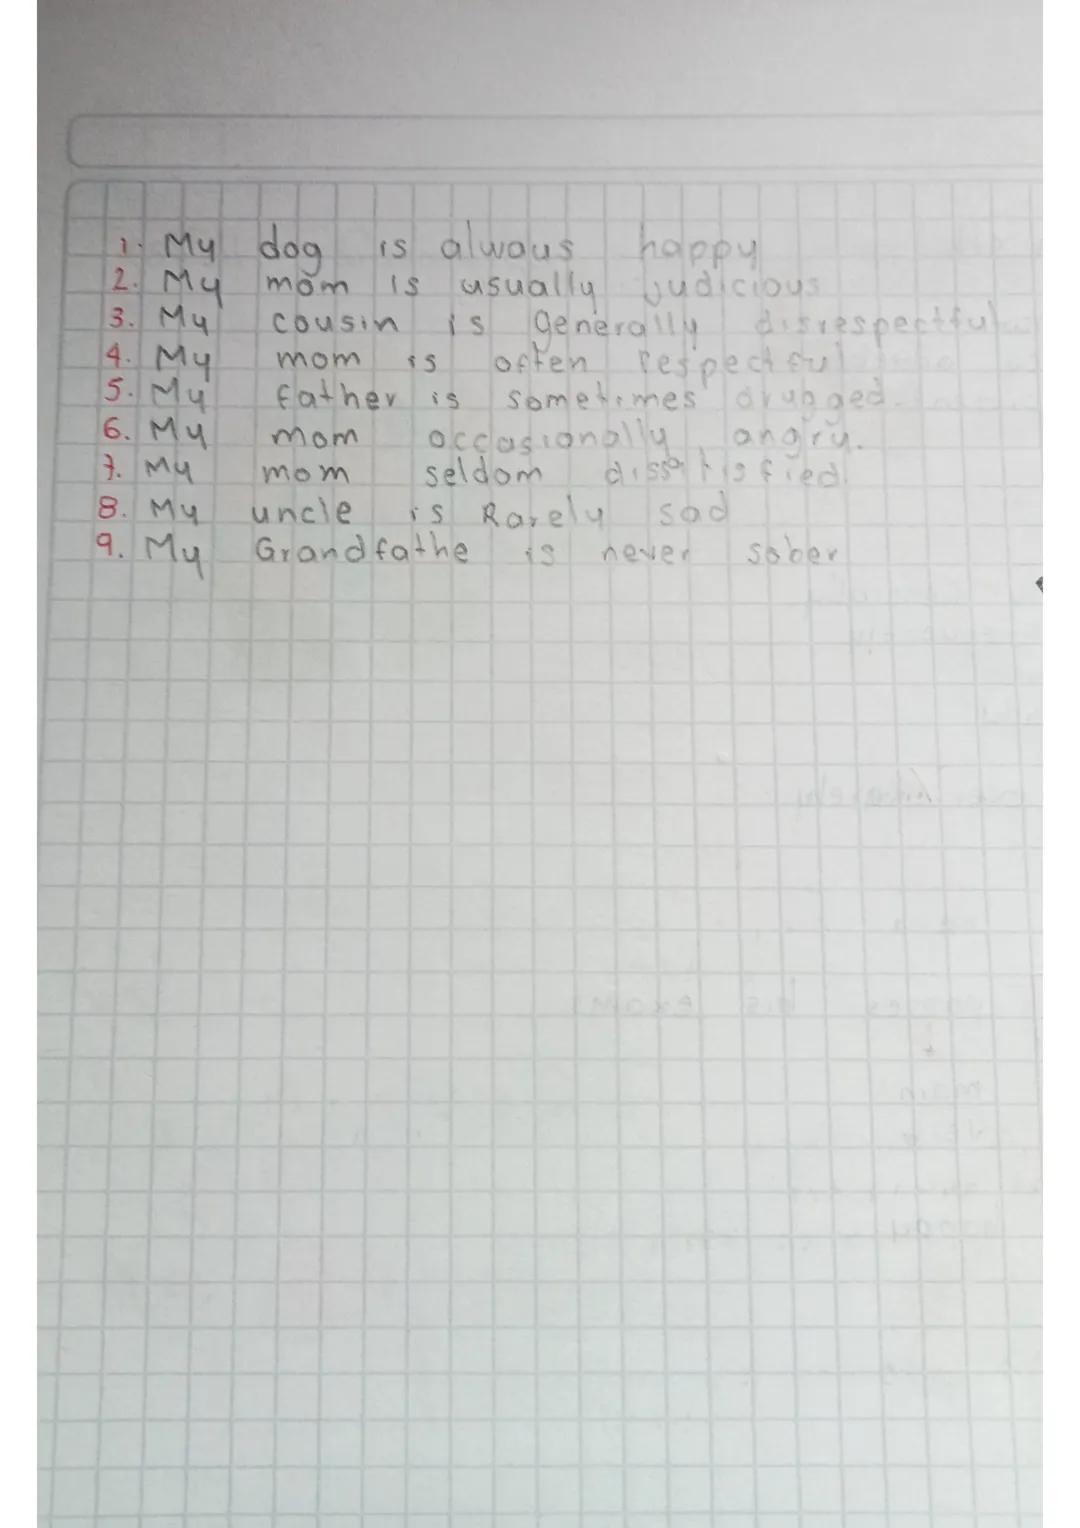 1. My dog is always happy
2. My mom is usually judicious
3. My cousin is generally disrespectful
4. My mom is often respectful
5. My father is sometimes drugged.
6. My mom occasionally angry.
7. My mom seldom dissatisfied.
8. My uncle is Rarely sad
9. My Grandfathe is never sober